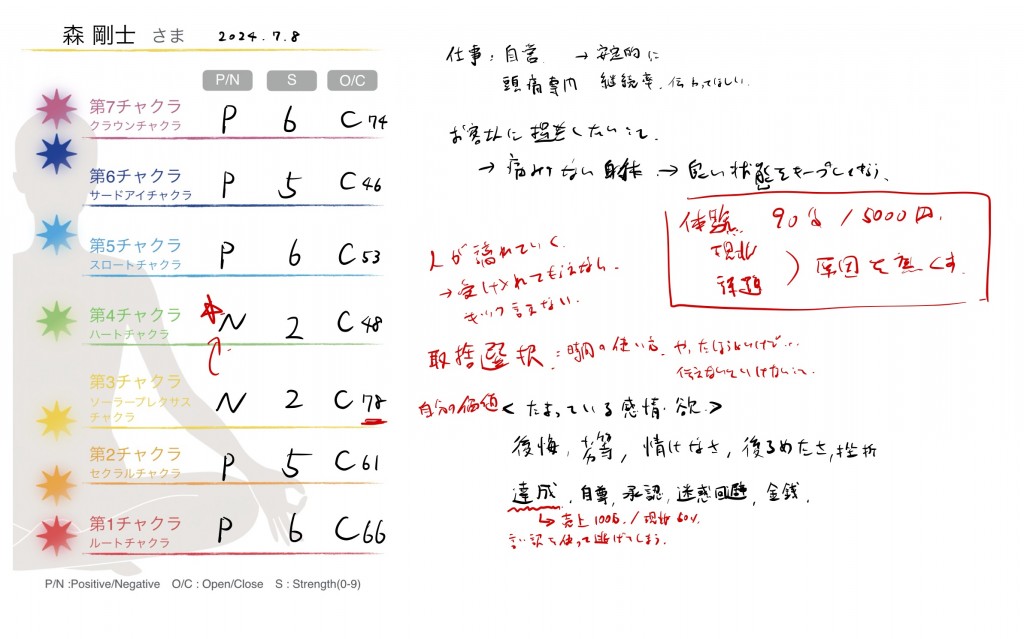 森 剛士 さま 2024.7.8
P/N S O/C
第7チャクラ
クラウンチャクラ
P 6 C74
第6チャクラ
サードアイチャクラ
P 5 C46
第5チャクラ
スロートチャクラ
P 6 C53
第4チャクラ
ハートチャクラ
N 2 C48
第3チャクラ
ソーラープレクサス
チャクラ
N 2 C78
第2チャクラ
セクラルチャクラ
P 5 C61
第1チャクラ
ルートチャクラ
P 6 C66
P/N :Positive/Negative O/C : Open/Close S : Strength(0-9)
仕事:自営 → 安定的に
頭痛専門 継続率、伝わってほしい。
お客さんに提案したいこと。
→ 痛みのない身体 → 良い状態をキープしてもらう、
体験 90分 / 5000円.
現状
課題
) 原因を無くす.
人が離れていく
→ 受け入れてもらえない.
キッツ言えない.
取捨選択:時間の使い方、やったほうがいいけど…
伝えないといけないこと.
自分の価値
<たまっている感情・欲>
後悔, 劣等, 情けなさ, 後ろめたさ, 挫折
達成, 自尊, 承認, 迷惑回避, 金銭,
↳ 売上100万. / 現状60万.
言い訳を使って逃げてしまう.